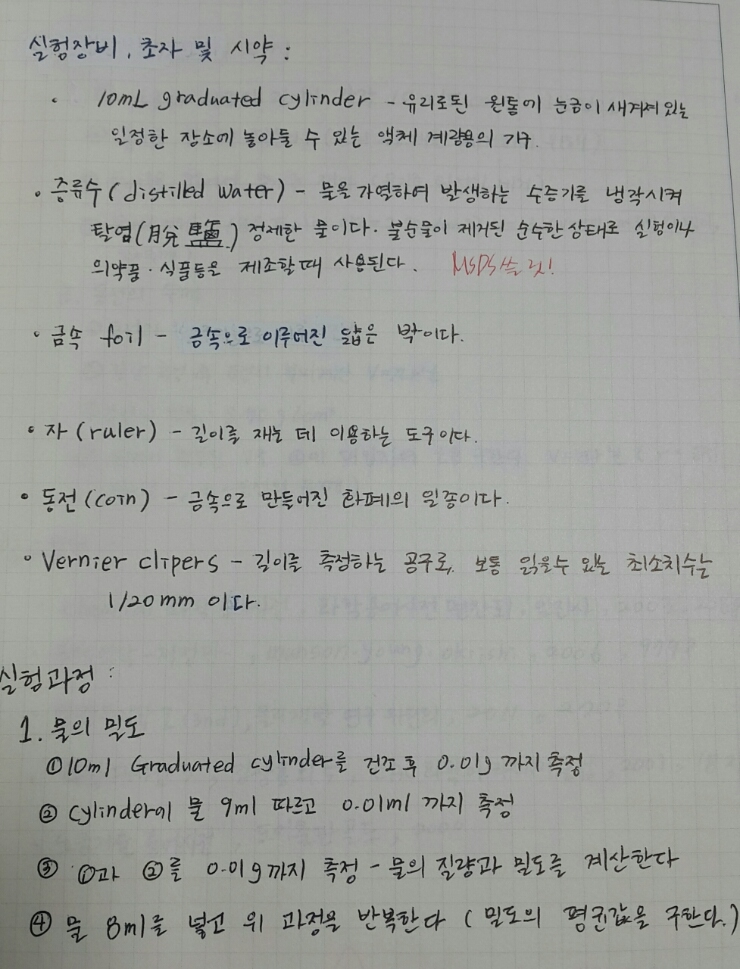 실험장비, 초자 및 시약 :
· 10mL graduated cylinder - 유리로된 원통에 눈금이 새겨져 있는
일정한 장소에 놓아둘 수 있는 액체 계량용의 기구.
· 증류수(distilled water) - 물을 가열하여 발생하는 수증기를 냉각시켜
탈염(脫鹽) 정제한 물이다. 불순물이 제거된 순수한 상태로 실험이나
의약품·식품등을 제조할때 사용된다. MSDS쓸것!
· 금속 foil - 금속으로 이루어진 얇은 박이다.
· 자(ruler) - 길이를 재는 데 이용하는 도구이다.
· 동전(coin) - 금속으로 만들어진 화폐의 일종이다.
· Vernier clipers - 길이를 측정하는 공구로, 보통 읽을수 있는 최소치수는
1/20mm 이다.
실험과정 :
1. 물의 밀도
① 10ml Graduated cylinder를 건조 후 0.01g 까지 측정
② cylinder에 물 9ml 따르고 0.01ml 까지 측정
③ ①과 ②를 0.01g까지 측정 - 물의 질량과 밀도를 계산한다
④ 물 8ml를 넣고 위 과정을 반복한다 (밀도의 평균값을 구한다.)